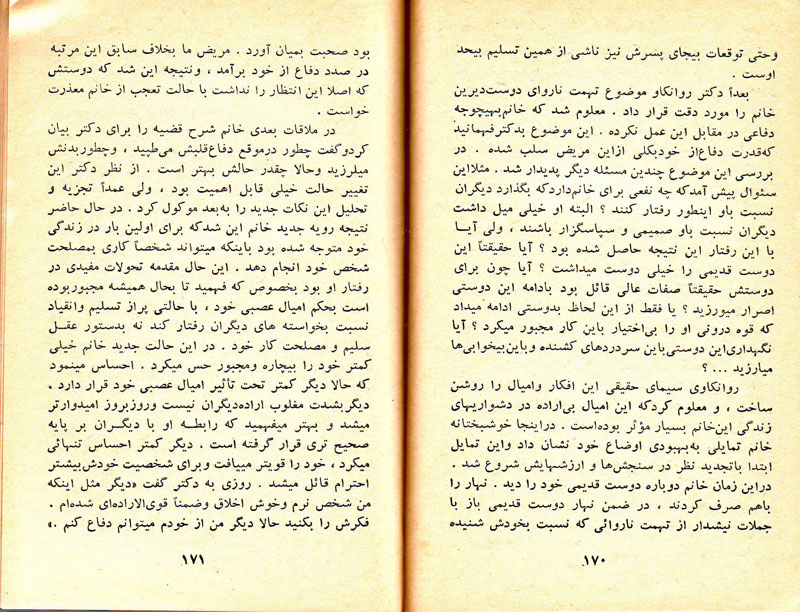 وحتی توقعات بیجای پسرش نیز ناشی از همین تسلیم بیحد
اوست .
بعداً دکتر روانکاو موضوع تهمت ناروای دوست‌دیرین
خانم را مورد دقت قرار داد . معلوم شد که خانم‌بهیچوجه
دفاعی در مقابل این عمل نکرده . این موضوع بدکترفهمانید
که‌قدرت دفاع‌از خودبکلی ازاین مریض سلب شده . در
بررسی این موضوع چندین مسئله دیگر پدیدار شد . مثلااین
سئوال پیش آمدکه چه نفعی برای خانم‌داردکه بگذارد دیگران
نسبت باو اینطور رفتار کنند ؟ البته او خیلی میل داشت
دیگران نسبت باو صمیمی و سپاسگزار باشند ، ولی آیا
با این رفتار این نتیجه حاصل شده بود ؟ آیا حقیقتاً این
دوست قدیمی را خیلی دوست میداشت ؟ آیا چون برای
دوستش حقیقتاً صفات عالی قائل بود بادامه این دوستی
اصرار میورزید ؟ یا فقط از این لحاظ بدوستی ادامه میداد
که قوه درونی او را بی‌اختیار باین کار مجبور میکرد ؟ آیا
نگهداری‌این دوستی‌باین سردردهای کشنده وباین‌بیخوابی‌ها
میارزید ... ؟
روانکاوی سیمای حقیقی این افکار وامیال را روشن
ساخت ، و معلوم کردکه این امیال بی‌اراده در دشواریهای
زندگی این‌خانم بسیار مؤثر بوده‌است . دراینجا خوشبختانه
خانم تمایلی به‌بهبودی اوضاع خود نشان داد واین تمایل
ابتدا باتجدید نظر در سنجش‌ها و ارزشهایش شروع شد .
دراین زمان خانم دوباره دوست قدیمی خود را دید . نهار را
باهم صرف کردند ، در ضمن نهار دوست قدیمی باز با
جملات نیشدار از تهمت ناروائی که نسبت بخودش شنیده
۱۷۰
بود صحبت بمیان آورد . مریض ما بخلاف سابق این مرتبه
در صدد دفاع از خود برآمد ، ونتیجه این شد که دوستش
که اصلا این انتظار را نداشت با حالت تعجب از خانم معذرت
خواست .
در ملاقات بعدی خانم شرح قضیه را برای دکتر بیان
کردوگفت چطور درموقع دفاع‌قلبش می‌طپید ، وچطوربدنش
میلرزید وحالا چقدر حالش بهتر است . از نظر دکتر این
تغییر حالت خیلی قابل اهمیت بود ، ولی عمداً تجزیه و
تحلیل این نکات جدید را به‌بعد موکول کرد . در حال حاضر
نتیجه رویه جدید خانم این شدکه برای اولین بار در زندگی
خود متوجه شده بود باینکه میتواند شخصاً کاری بمصلحت
شخص خود انجام دهد . این حال مقدمه تحولات مفیدی در
رفتار او بود بخصوص که فهمید تا بحال همیشه مجبوربوده
است بحکم امیال عصبی خود ، با حالتی پراز تسلیم وانقیاد
نسبت بخواسته های دیگران رفتار کند نه بدستور عقل
سلیم و مصلحت کار خود . در این حالت جدید خانم خیلی
کمتر خود را بیچاره ومجبور حس میکرد . احساس مینمود
که حالا دیگر کمتر تحت تأثیر امیال عصبی خود قرار دارد .
دیگر بشدت مغلوب اراده‌دیگران نیست وروزبروز امیدوارتر
میشد و بهتر میفهمید که رابطه او با دیگران بر پایه
صحیح تری قرار گرفته است . دیگر کمتر احساس تنهائی
میکرد ، خود را قویتر مییافت وبرای شخصیت خودش‌بیشتر
احترام قائل میشد . روزی به دکتر گفت «دیگر مثل اینکه
من شخص نرم وخوش اخلاق وضمناً قوی‌الاراده‌ای شده‌ام .
فکرش را بکنید حالا دیگر من از خودم میتوانم دفاع کنم .»
۱۷۱